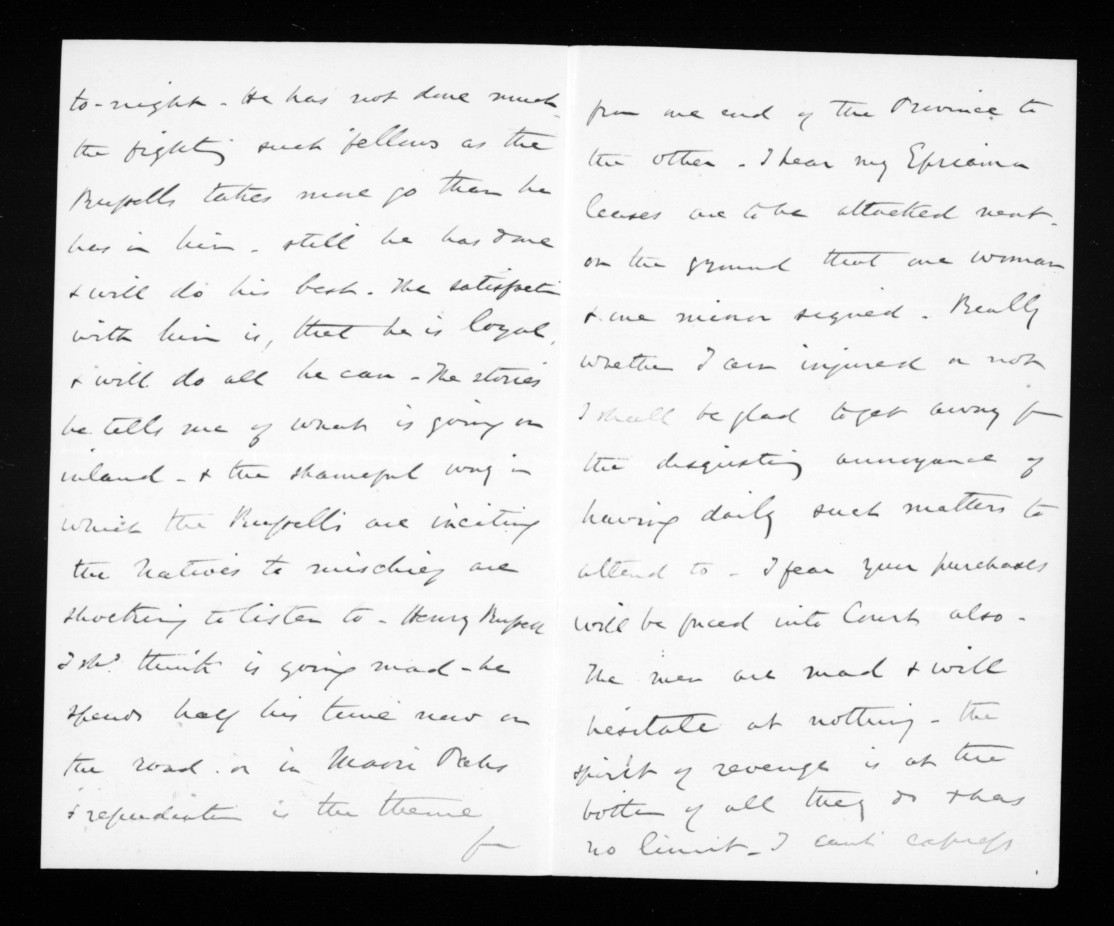 to-night - He has not done much
the fighting such fellows as the
Russells takes more go than he
has in him - still he has done
& will do his best. The satisfactn
with him is, that he is loyal,
& will do all he can - The stories
he tells me of what is going on
inland - & the shameful way in
which the Russells are inciting
the Natives to mischief are
shocking to listen to - Henry Russell
I shd. think is going mad - he
spends half his time now on
the road. or in Maori Pahs
& repudiation is the theme
from
from one end of the Province to
the other - I hear my
leases are to be attacked next -
on the ground that one woman
& one minor signed. Really
whether I am injured or not
I shall be glad to get away from
the disgusting annoyance of
having daily such matters to
attend to - I fear your purchases
will be forced into Court also -
The men are mad & will
hesitate at nothing - the
spirit of revenge is at the
bottom of all they do & has
no limit - I can't express